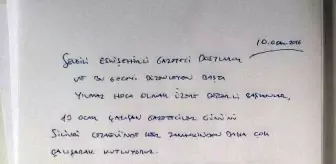 10.Ocak 2016
Sevgili Eskişehirli Gazeteci Dostlarım
ve bu geceyi düzenleyen başta
Yılmaz Hoca olmak üzere değerli başkanlar,
10 Ocak Çalışan Gazeteciler Gününü
Silivri Cezaevi'nde her zamankinden daha çok
çalışarak kutluyoruz.